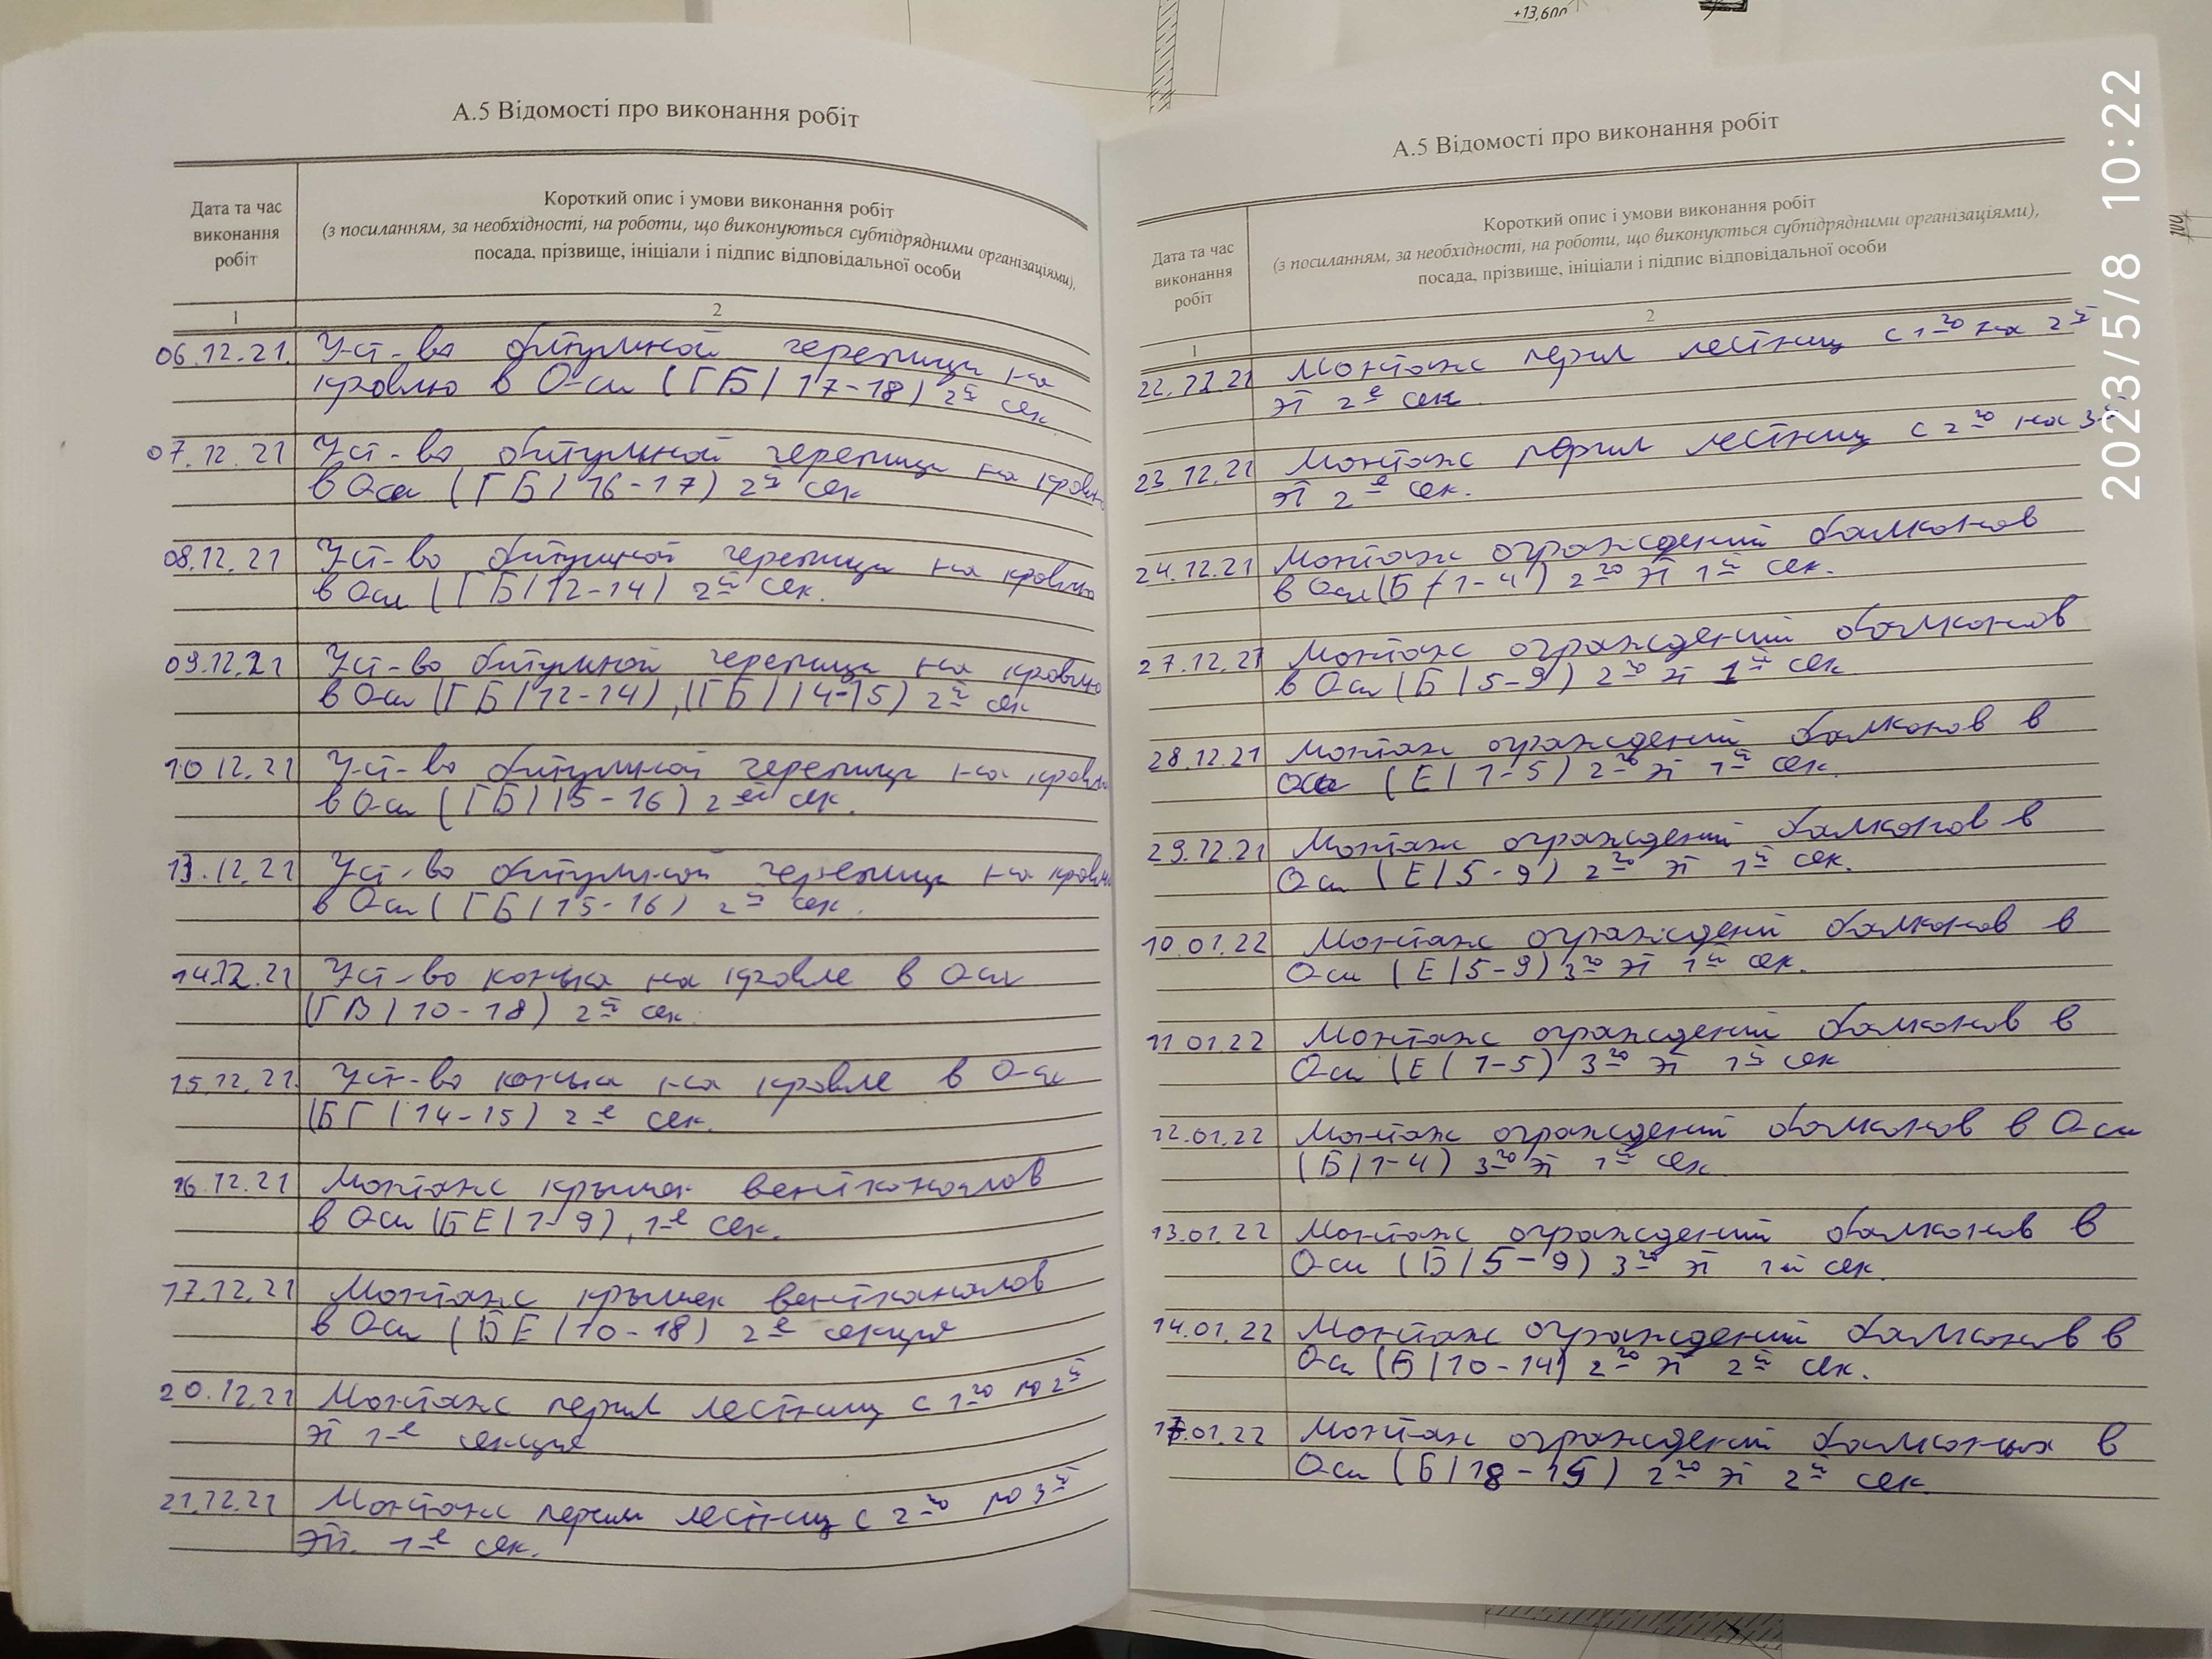 +13,600
А.5 Відомості про виконання робіт
Дата та час
виконання
робіт
Короткий опис і умови виконання робіт
(з посиланням, за необхідності, на роботи, що виконуються субпідрядними організаціями),
посада, прізвище, ініціали і підпис відповідальної особи
1
2
06.12.21. Уст-во битумной черепицы на
кровлю в Оси (ГБ/17-18) 2й сек
07.12.21 Уст-во битумной черепицы на кровлю
в Оси (ГБ/16-17) 2й сек
08.12.21 Уст-во битумной черепицы на кровлю
в Оси (ГБ/12-14) 2й сек.
09.12.21 Уст-во битумной черепицы на кровлю
в Оси (ГБ/12-14), (ГБ/14-15) 2й сек
10.12.21 Уст-во битумной черепицы на кровлю
в Оси (ГБ/15-16) 2ей сек.
13.12.21 Уст-во битумной черепицы на кровлю
в Оси (ГБ/15-16) 2й сек.
14.12.21 Уст-во конька на кровле в Оси
(ГВ/10-18) 2й сек.
15.12.21. Уст-во конька на кровле в Оси
(БГ/14-15) 2-е сек.
16.12.21 Монтаж крышек вентканалов
в Оси (БЕ/1-9), 1-е сек.
17.12.21 Монтаж крышек вентканалов
в Оси (БЕ/10-18) 2-е секция
20.12.21 Монтаж перил лестниц с 1-го по 2й
эт 1-е секция
21.12.21 Монтаж перил лестниц с 2-го по 3й
эт. 1-е сек.
А.5 Відомості про виконання робіт
Дата та час
виконання
робіт
Короткий опис і умови виконання робіт
(з посиланням, за необхідності, на роботи, що виконуються субпідрядними організаціями),
посада, прізвище, ініціали і підпис відповідальної особи
1
2
22.12.21 Монтаж перил лестниц с 1-го на 2й
эт 2-е сек.
23.12.21 Монтаж перил лестниц с 2-го на 3-й
эт 2-е сек.
24.12.21 Монтаж ограждений балконов
в Оси (Б/1-4) 2-го эт 1й сек.
27.12.21 Монтаж ограждений балконов
в Оси (Б/5-9) 2-го эт 1й сек.
28.12.21 Монтаж ограждений балконов в
Оси (Е/1-5) 2-го эт 1й сек.
29.12.21 Монтаж ограждений балконов в
Оси (Е/5-9) 2-го эт 1й сек.
10.01.22 Монтаж ограждений балконов в
Оси (Е/5-9) 3-го эт 1й сек.
11.01.22 Монтаж ограждений балконов в
Оси (Е/1-5) 3-го эт 1й сек
12.01.22 Монтаж ограждений балконов в Оси
(Б/1-4) 3-го эт 1й сек.
13.01.22 Монтаж ограждений балконов в
Оси (Б/5-9) 3-го эт 1й сек.
14.01.22 Монтаж ограждений балконов в
Оси (Б/10-14) 2-го эт 2й сек.
17.01.22 Монтаж ограждений балконых в
Оси (Б/18-15) 2-го эт 2й сек.
2023/5/8 10:22